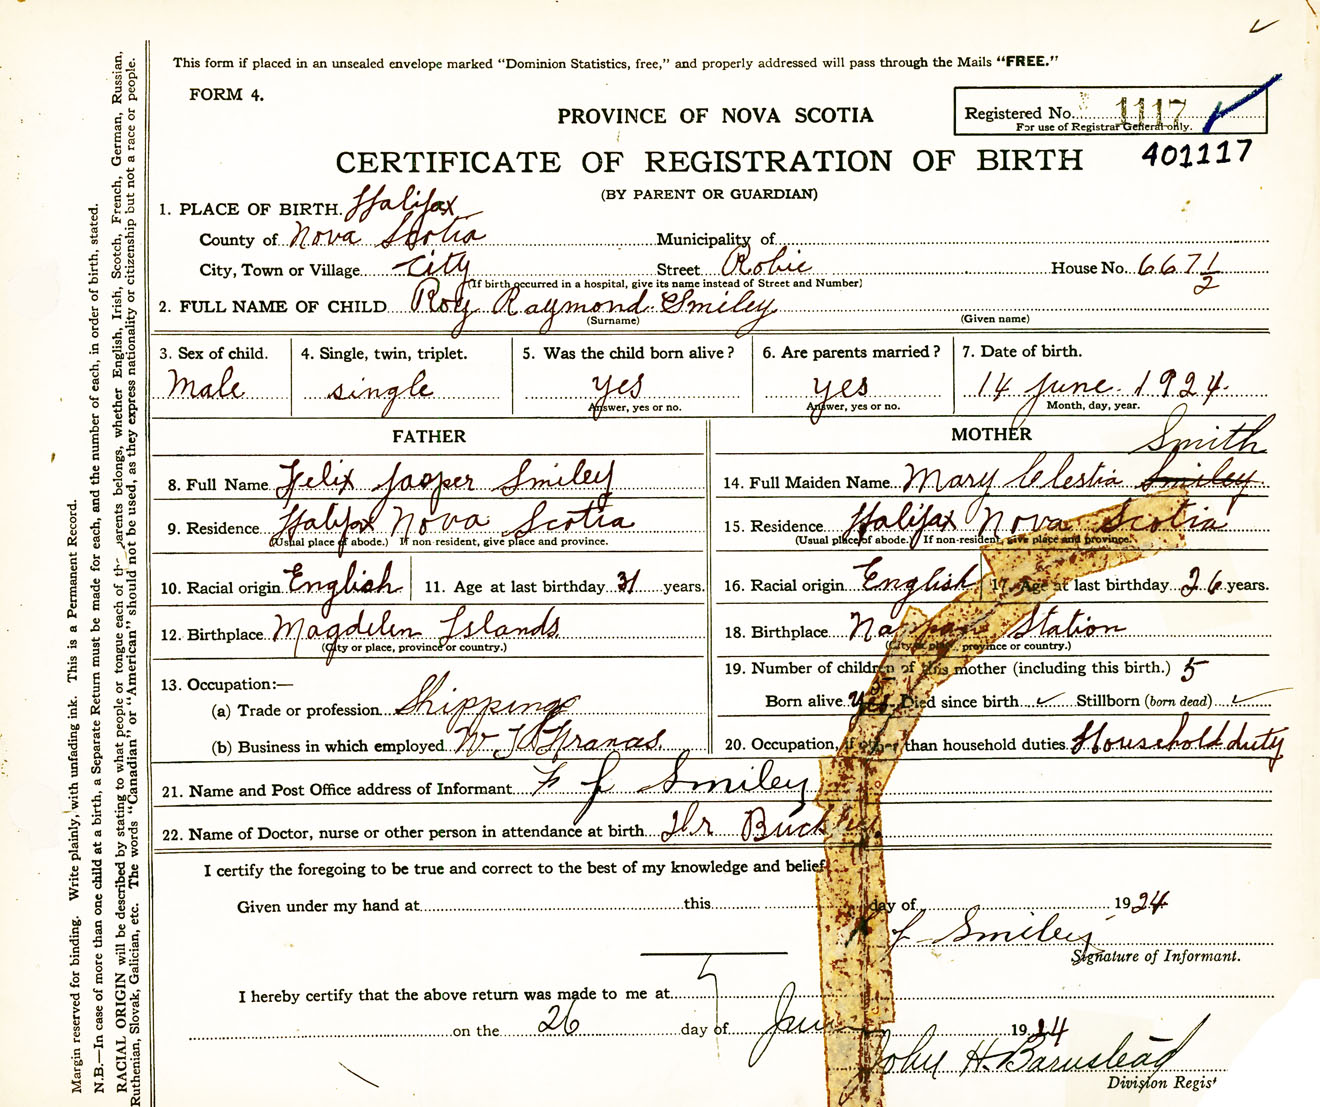 This form if placed in an unsealed envelope marked "Dominion Statistics, free," and properly addressed will pass through the Mails "FREE."
FORM 4.
PROVINCE OF NOVA SCOTIA
Registered No. 1117
For use of Registrar General only.
CERTIFICATE OF REGISTRATION OF BIRTH
401117
(BY PARENT OR GUARDIAN)
1. PLACE OF BIRTH. Halifax
County of Nova Scotia Municipality of
City, Town or Village City Street Robie House No. 667 1/2
(If birth occurred in a hospital, give its name instead of Street and Number)
2. FULL NAME OF CHILD Roy Raymond Smiley
(Surname) (Given name)
3. Sex of child. 4. Single, twin, triplet. 5. Was the child born alive? 6. Are parents married? 7. Date of birth.
Male single yes yes 14 June 1924
Answer, yes or no. Answer, yes or no. Month, day, year.
FATHER MOTHER
Smith
8. Full Name Felix Jasper Smiley 14. Full Maiden Name Mary Clestia Smiley
9. Residence Halifax Nova Scotia 15. Residence Halifax Nova Scotia
(Usual place of abode.) If non-resident, give place and province. (Usual place of abode.) If non-resident, give place and province.
10. Racial origin English 11. Age at last birthday 31 years. 16. Racial origin English 17. Age at last birthday 26 years.
12. Birthplace Magdelen Islands 18. Birthplace Nappan Station
(City or place, province or country.) (City or place, province or country.)
13. Occupation:— 19. Number of children of this mother (including this birth.) 5
(a) Trade or profession Shipping Born alive yes Died since birth ✓ Stillborn (born dead) ✓
(b) Business in which employed W 20. Occupation, if other than household duties. Household duty
21. Name and Post Office address of Informant F J Smiley
22. Name of Doctor, nurse or other person in attendance at birth Dr
I certify the foregoing to be true and correct to the best of my knowledge and belief
Given under my hand at this day of 1924
J Smiley
Signature of Informant.
I hereby certify that the above return was made to me at
on the 26 day of June 1924
John H. Barnstead
Division Regist
Margin reserved for binding. Write plainly, with unfading ink. This is a Permanent Record.
N.B.—In case of more than one child at a birth, a Separate Return must be made for each, and the number of each, in order of birth, stated.
RACIAL ORIGIN will be described by stating to what people or tongue each of the parents belongs, whether English, Irish, Scotch, French, German, Russian,
Ruthenian, Slovak, Galician, etc. The words "Canadian" or "American" should not be used, as they express nationality or citizenship but not a race or people.